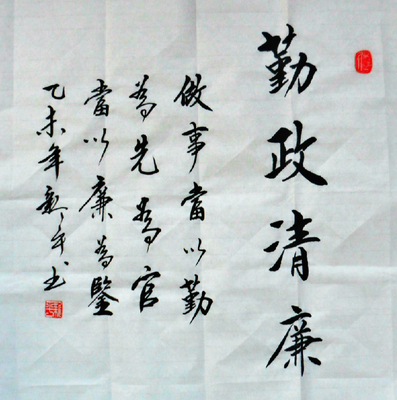 勤政清廉
做事當以勤
為先為官
當以廉為鑒
乙未年
书